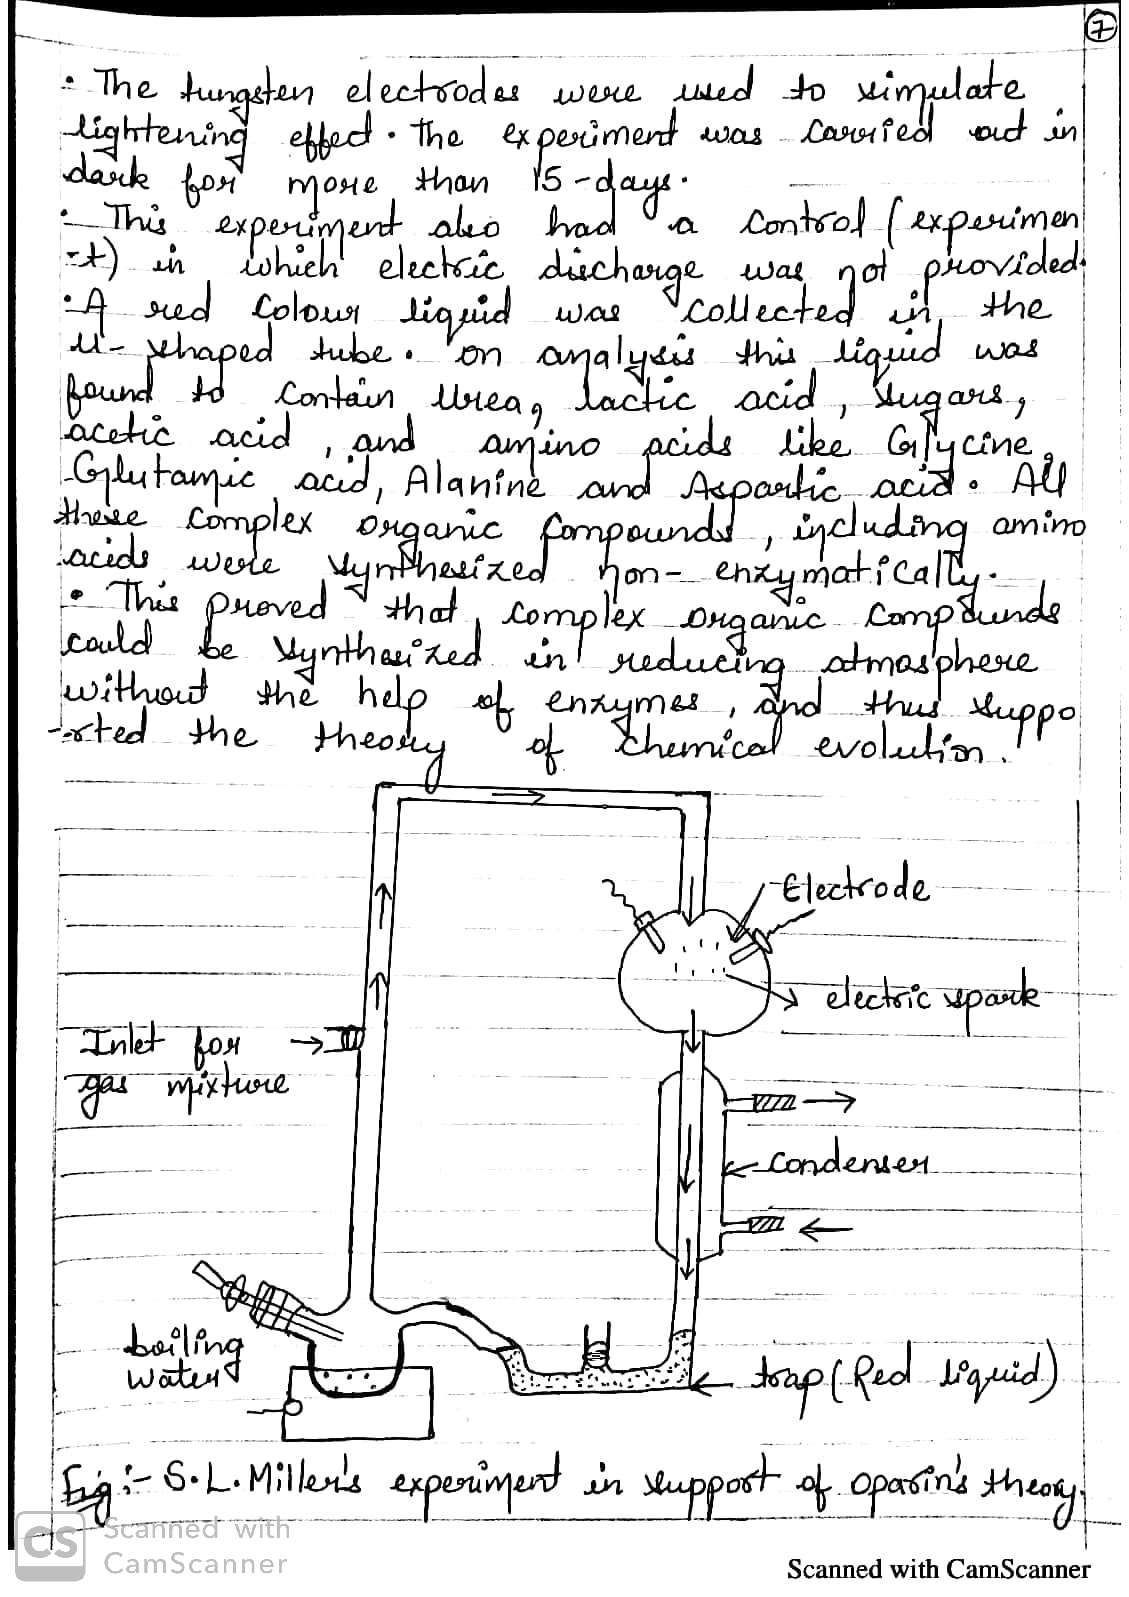 7
• The tungsten electrodes were used to simulate
lightening effect. The experiment was carried out in
dark for more than 15-days.
• This experiment also had a control (experimen
-t) in which electric discharge was not provided.
• A red colour liquid was collected in the
U-shaped tube. on analysis this liquid was
found to contain Urea, lactic acid, sugars,
acetic acid, and amino acids like Glycine,
Glutamic acid, Alanine and Aspartic acid. All
these complex organic compounds, including amino
acids were synthesized non-enzymatically.
• This proved that complex organic compounds
could be synthesized in reducing atmosphere
without the help of enzymes, and thus suppo
-rted the theory of chemical evolution.
Electrode
electric spark
Inlet for
gas mixture
condenser
boiling
water
trap (Red liquid)
Fig:- S.L. Miller's experiment in support of oparin's theory.
CS
Scanned with
CamScanner
Scanned with CamScanner